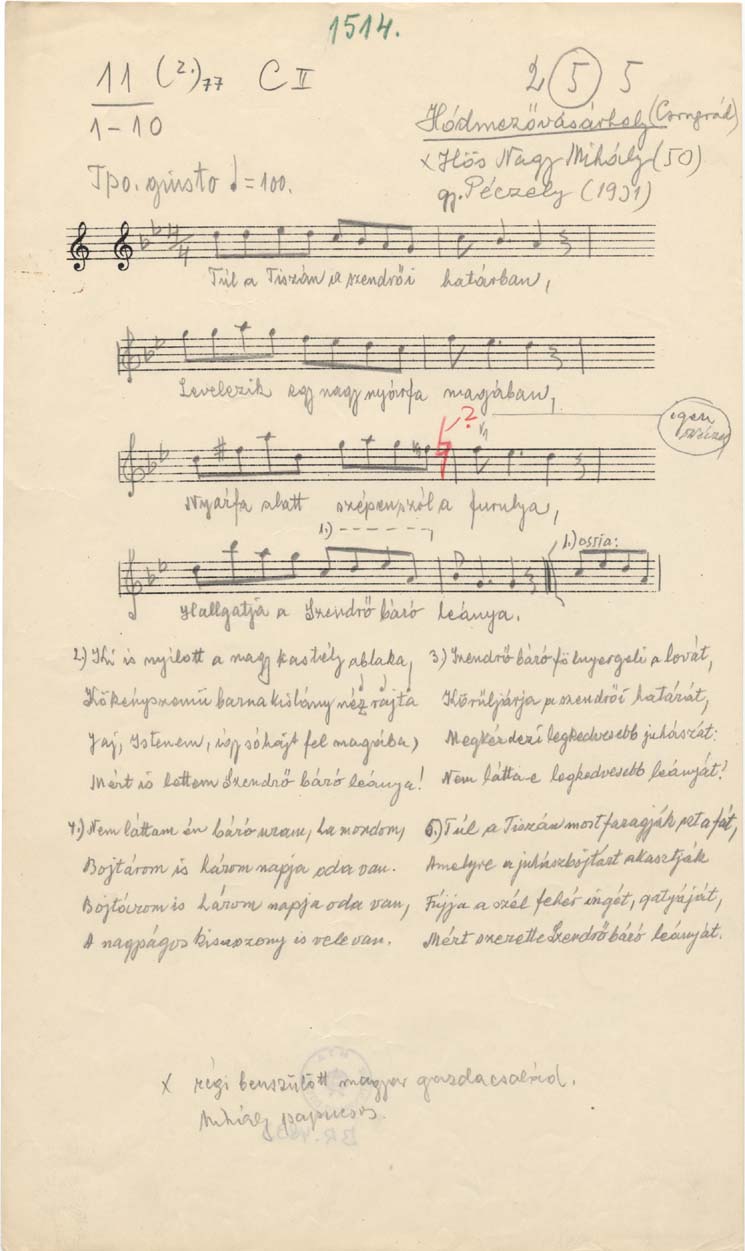 1514.
11 (2.)77 C II 2 5 5
1-10
Hódmezővásárhely (Csongrád)
x Hős Nagy Mihály (50)
Tpo. giusto ♩=100.
gy. Péczely (1931)
4/4
Túl a Tiszán a szendrői határban,
Levelezik egy nagy nyárfa magában,
?
igen
Nyárfa alatt szépen szól a furulya,
1.) 1.) ossia:
Hallgatja a Szendrő báró leánya.
2.) Ki is nyílott a nagy kastély ablaka,
Kökényszemű barna kislány néz rajta
Jaj, Istenem, így sóhajt fel magába,
Mért is lettem Szendrő báró leánya!
3.) Szendrő báró fölnyergeli a lovát,
Körüljárja a szendrői határát,
Megkérdezi legkedvesebb juhászát:
Nem látta-e legkedvesebb leányát?
4.) Nem láttam én báró uram, ha mondom,
Bojtárom is három napja oda van.
Bojtárom is három napja oda van,
A nagyságos kisasszony is vele van.
5.) Túl a Tiszán most faragják azt a fát,
Amelyre a juhászbojtárt akasztják
Fújja a szél fehér ingét, gatyáját,
Mért szerette Szendrő báró leányát.
x régi benszülött magyar gazdacsalád.
Mihály papucsos.